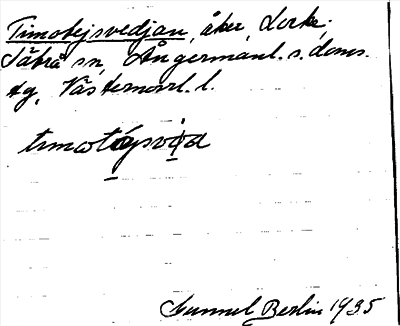 Timotejsvedjan, åker, Lorke,
Säbrå sn, Ångermanl. s. doms.
tg, Västernorrl. l.
timotə̣jsvia
Gunnel Berlin 1935